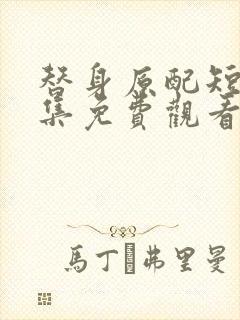 替身原配短
集免費觀看
馬丁�弗里曼